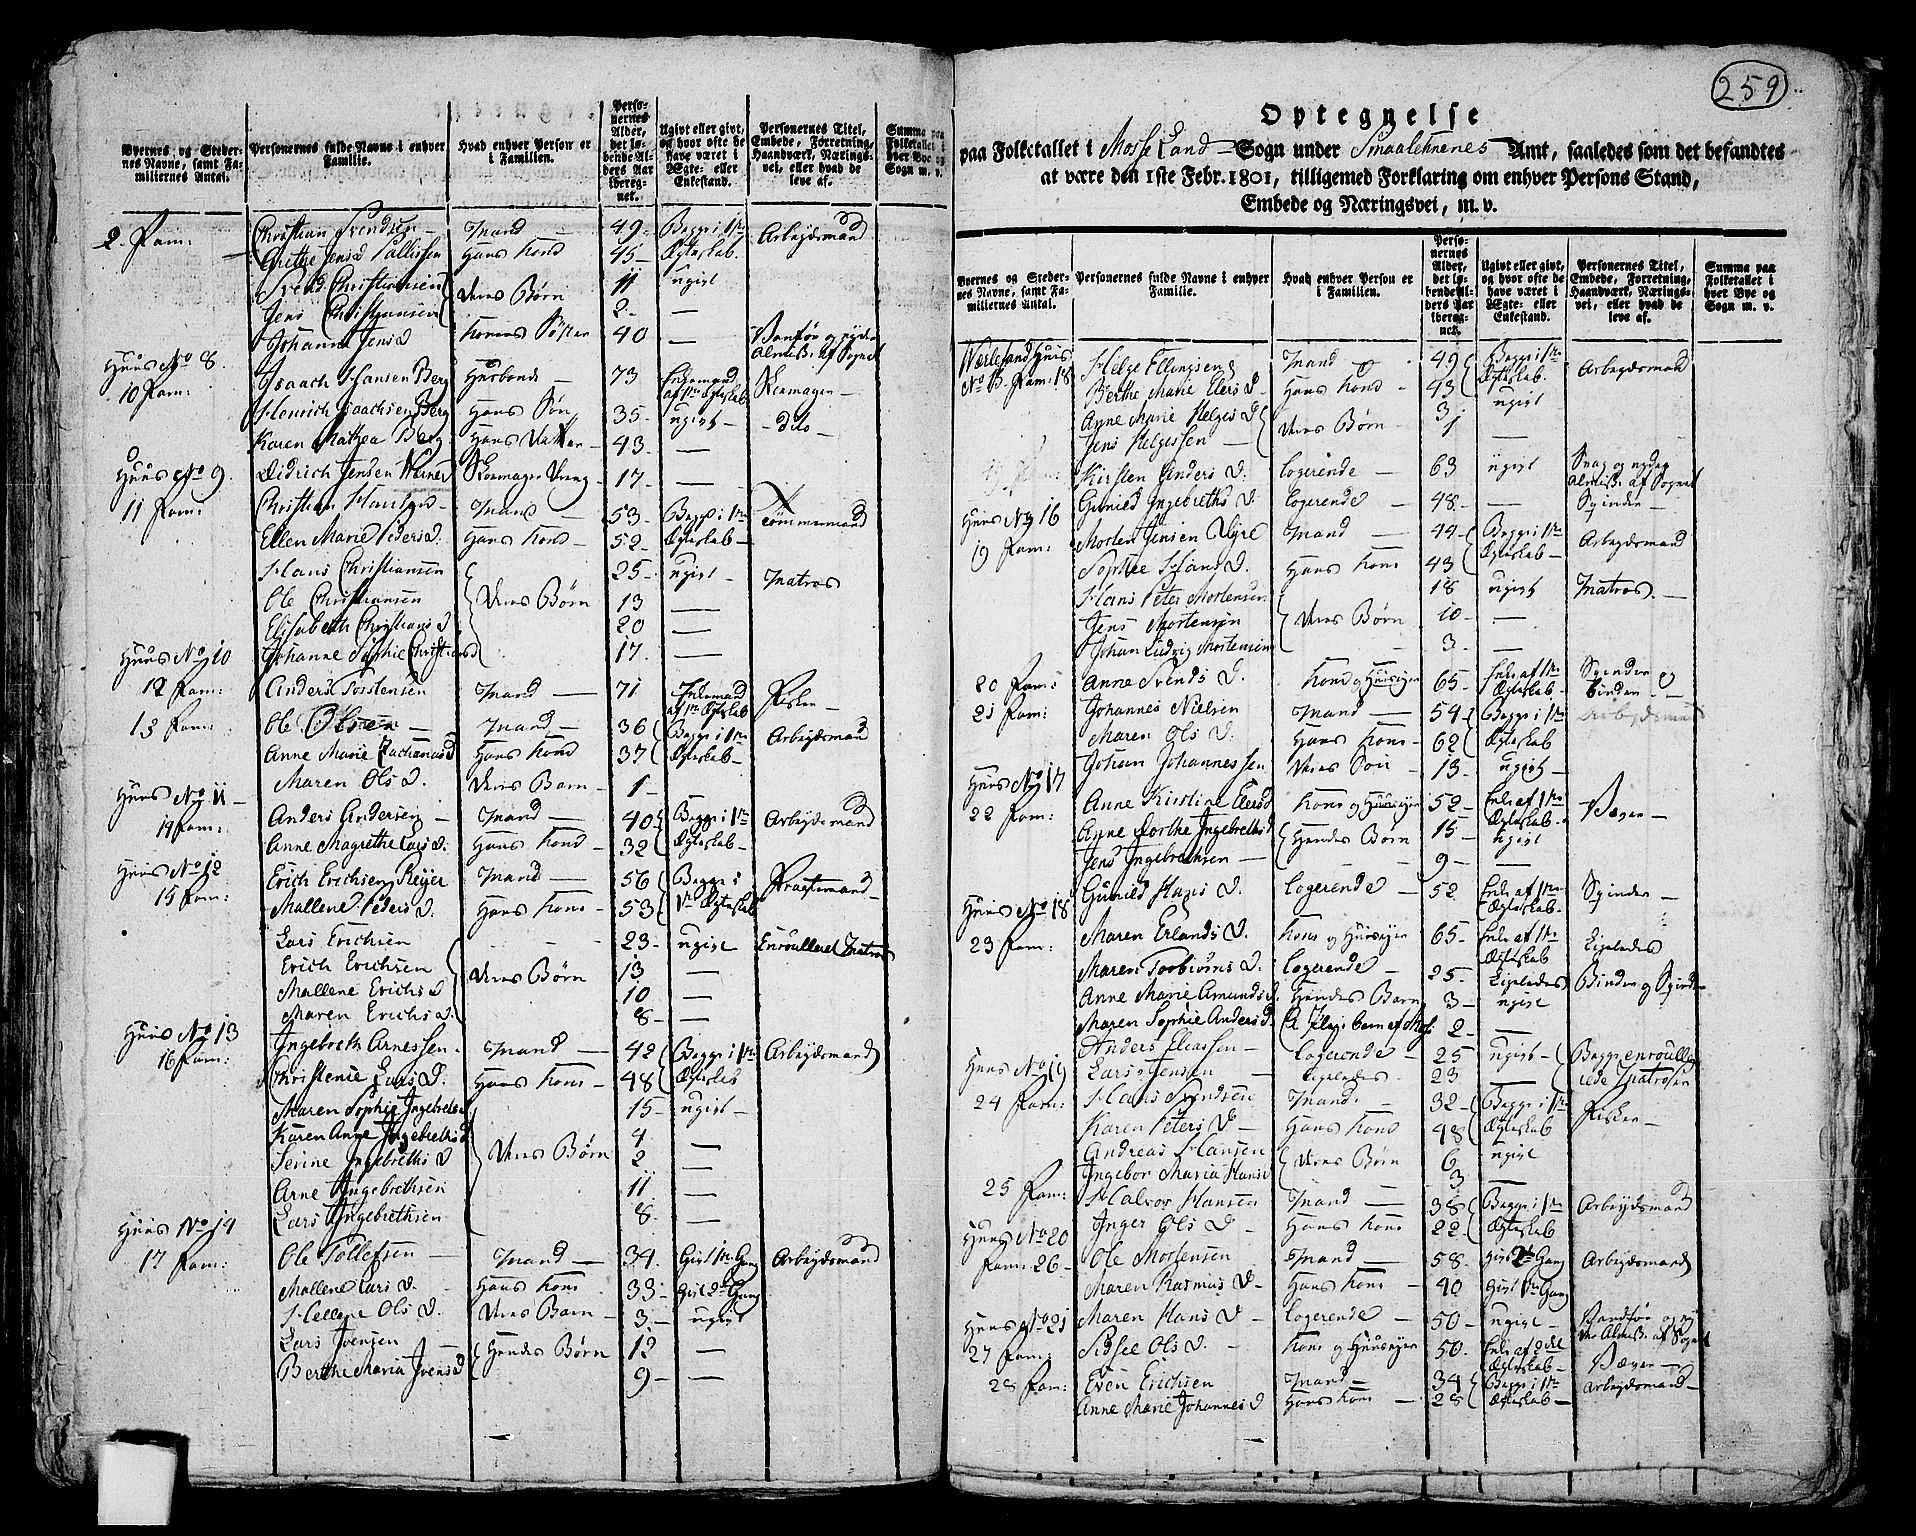 259
Byernes og Stedernes Navne, samt Familiernes Antal.
Personernes fulde Navne i enhver Familie.
Hvad enhver Person er i Familien.
Personernes Alder, det løbende Alders Aar iberegnet.
Ugivt eller givt, og hvor ofte de have været i Ægte- eller Enkestand.
Personernes Titel, Embede, Forretning, Haandværk, Næringsvei, eller hvad de leve af.
Summa paa Folketallet i hver Bye og Sogn m. v.
9. Fam: Christian Svendsen Mand 49 Begge i 1te Arbejdsmand
Grethe Jens d Pallissen Hans Kone 45 Ægteskab
Svend Christiansen Deres Børn 11 ugivt
Jens Christiansen 2 —
Johanne Jens d Konens Søster 40 — Vanfør og nyder
Huus No 8. Almiss. af Sognet
10 Fam: Isaach Hansen Berg Husbonde 73 Enkemand Skomager
af 1te Ægteskab
Henrich Isaachsen Berg Hans Søn 35 ugivt dito
Karen Mathea Berg Hans Datter 43 —
Huus No 9. Didrich Jensen Werner Skomager Dreng 17 —
11 Fam: Christian Hansen Mand 53 Begge i 1te Tømmermand
Ellen Marie Peders d. Hans Kone 52 Ægteskab
Hans Christiansen 25 ugivt Matros
Ole Christiansen Deres Børn 13 —
Elisabeth Christians d 20 —
Huus No 10 Johanne Sophie Christians d 17 —
12 Fam: Anders Torstensen Mand 71 Enkemand Fisker
af 1te Ægteskab
13 Fam: Ole Olsen Mand 36 Begge i 1te Arbejdsmand
Anne Marie Zachariasd Hans Kone 37 Ægteskab
Maren Ols d. Deres Barn 1
Huus No 11
14 Fam: Anders Andersen Mand 40 Begge i 1te Arbejdsmand
Anne Magrethe Lars d. Hans Kone 32 Ægteskab
Huus No 12
15 Fam: Erich Erichsen Reyer Mand 56 Begge i
Mallene Peders d. Hans Kone 53 1te Ægteskab
Lars Erichsen 23 ugivt Enroulleret Matros
Erich Erichsen Deres Børn 13 —
Mallene Erichs d 10 —
Maren Erichs d. 8 —
Huus No 13
16 Fam: Ingebreth Arnessen Mand 42 Begge i 1te Arbejdsmand
Christense Lars d. Hans Kone 48 Ægteskab
Maren Sophie Ingebreths d 15 ugivt
Karen Anne Ingebreths d 4 —
Serine Ingebreths d Deres Børn 2 —
Arne Ingebrethsen 11 —
Lars Ingebrethsen 8 —
Huus No 14
17 Fam: Ole Tollefsen Mand 34 Givt 1te Gang Arbejdsmand
Mallene Lars d. Hans Kone 33 Givt 2den Gang
Hellene Ols d. Deres Barn 3 ugivt
Lars Ivensen Hendes Børn 12 —
Berthe Maria Ivens d 9 —
Optegnelse
paa Folketallet i Mosse Land Sogn under Smaalehnenes Amt, saaledes som det befandtes
at være den 1ste Febr. 1801, tilligemed Forklaring om enhver Persons Stand,
Embede og Næringsvei, m. v.
Byernes og Stedernes Navne, samt Familiernes Antal.
Personernes fulde Navne i enhver Familie.
Hvad enhver Person er i Familien.
Personernes Alder, det løbende Alders Aar iberegnet.
Ugivt eller givt, og hvor ofte de have været i Ægte- eller Enkestand.
Personernes Titel, Embede, Forretning, Haandværk, Næringsvei, eller hvad de leve af.
Summa paa Folketallet i hver Bye og Sogn m. v.
Werlesand Huus Helge Ellingsen Mand 49 Begge i 1te Arbejdsmand
Fam: 18 Berthe Marie Elers d Hans Kone 43 Ægteskab
Anne Marie Helges d Deres Børn 3 ugivt
Jens Helgessen 1 —
Kirsten Anders d. Logerende 63 ugivt Svag og nyder
Almiss. af Sognet
Huus No 16 Gunild Ingebreths d. Logerende 48 — Spinder
19 Fam: Morten Jensen Mand 44 Begge i 1te Arbejdsmand
Sophie Hans d. Hans Kone 43 Ægteskab
Hans Peter Mortensen 18 ugivt Matros
Jens Mortensen Deres Børn 10 —
Johan Ludvig Mortensen 3 —
20 Fam: Anne Svends d. Kone og Huusejer 65 Enke af 1te Ægteskab Spinder og Binder
21 Fam: Johannes Nielsen Mand 54 Begge i 1te Arbejdsmand
Maren Ols d. Hans Kone 62 Ægteskab
Huus No 17 Johan Johannessen Deres Søn 13 ugivt
22 Fam: Anne Kirstine Elers d Kone og Huusejer 52 Enke af 1te Ægteskab Væver
Anne Dorthe Ingebreths d Hendes Børn 15 ugivt
Jens Ingebrethsen 9 —
Huus No 18 Gunild Hans d. Logerende 52 Enke af 1te Ægteskab Spinder
23 Fam: Maren Erlands d. Kone og Huusejer 65 Enke af 1te Ægteskab Ligeledes
Maren Torbiørns d. Logerende 25 Ligeledes Binder og Spinder
Anne Marie Amunds d. Hendes Barn 3 ugivt
Maren Sophie Anders d. Et Pleje barn af Moss 2 —
Huus No 19 Anders Eliassen Logerende 25 ugivt Begge enroulle
Lars Jensen Ligeledes 23 — rede Matroser
24 Fam: Hans Svendsen Mand 32 Begge i 1te Fisker
Karen Peters d Hans Kone 48 Ægteskab
Andreas Hansen Deres Børn 6 ugivt
Ingebor Maria Hans d 3 —
25 Fam: Halvor Hansen Mand 38 Begge i 1te Arbejdsmand
Huus No 20 Inger Ols d Hans Kone 22 Ægteskab
Fam: 26 Ole Mortensen Mand 58 Givt 2den Gang Arbejdsmand
Maren Rasmus d Hans Kone 40 Givt 1te Gang
Huus No 21 Maren Hans d Logerende 50 ugivt Vandfør og ny
der Almiss. af Sognet
27 Fam: Sidsel Ols d. Kone og Huusejer 50 Enke af 2det Ægteskab Væver
28 Fam: Even Erichsen Mand 34 Begge i 1te Arbejdsmand
Anne Marie Johannes d Hans Kone 28 Ægteskab